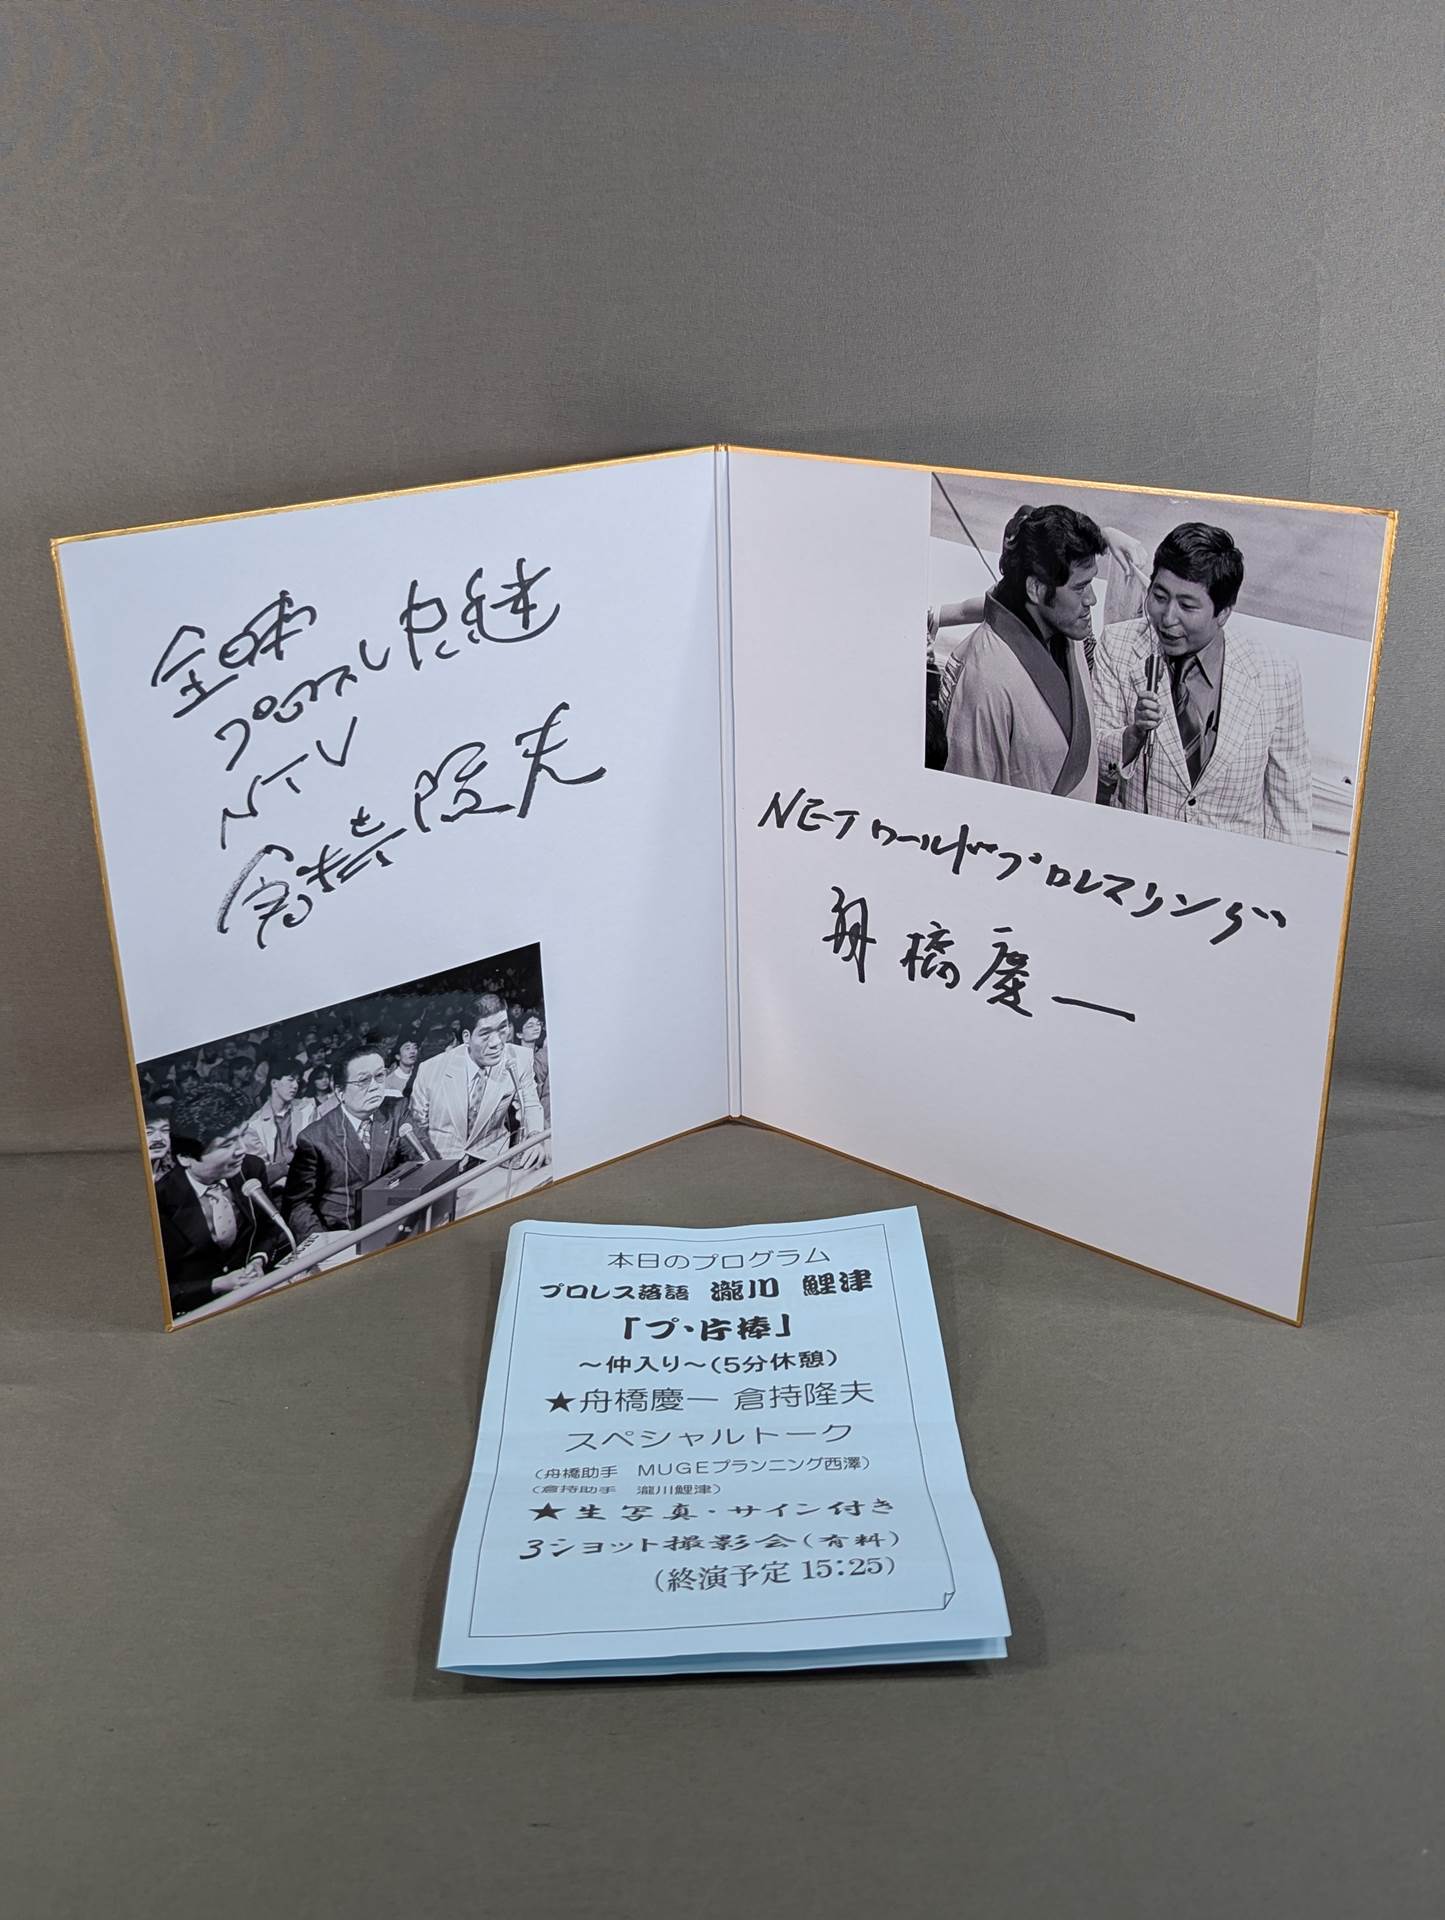 全日本
プロレス中継
NTV
倉持隆夫
NETワールドプロレスリング
舟橋慶一
本日のプログラム
プロレス落語 瀧川 鯉津
「プ・片棒」
～仲入り～(5分休憩)
★舟橋慶一 倉持隆夫
スペシャルトーク
(舟橋助手 MUGEプランニング西澤)
(倉持助手 瀧川鯉津)
★生写真・サイン付き
3ショット撮影会(有料)
(終演予定 15:25)